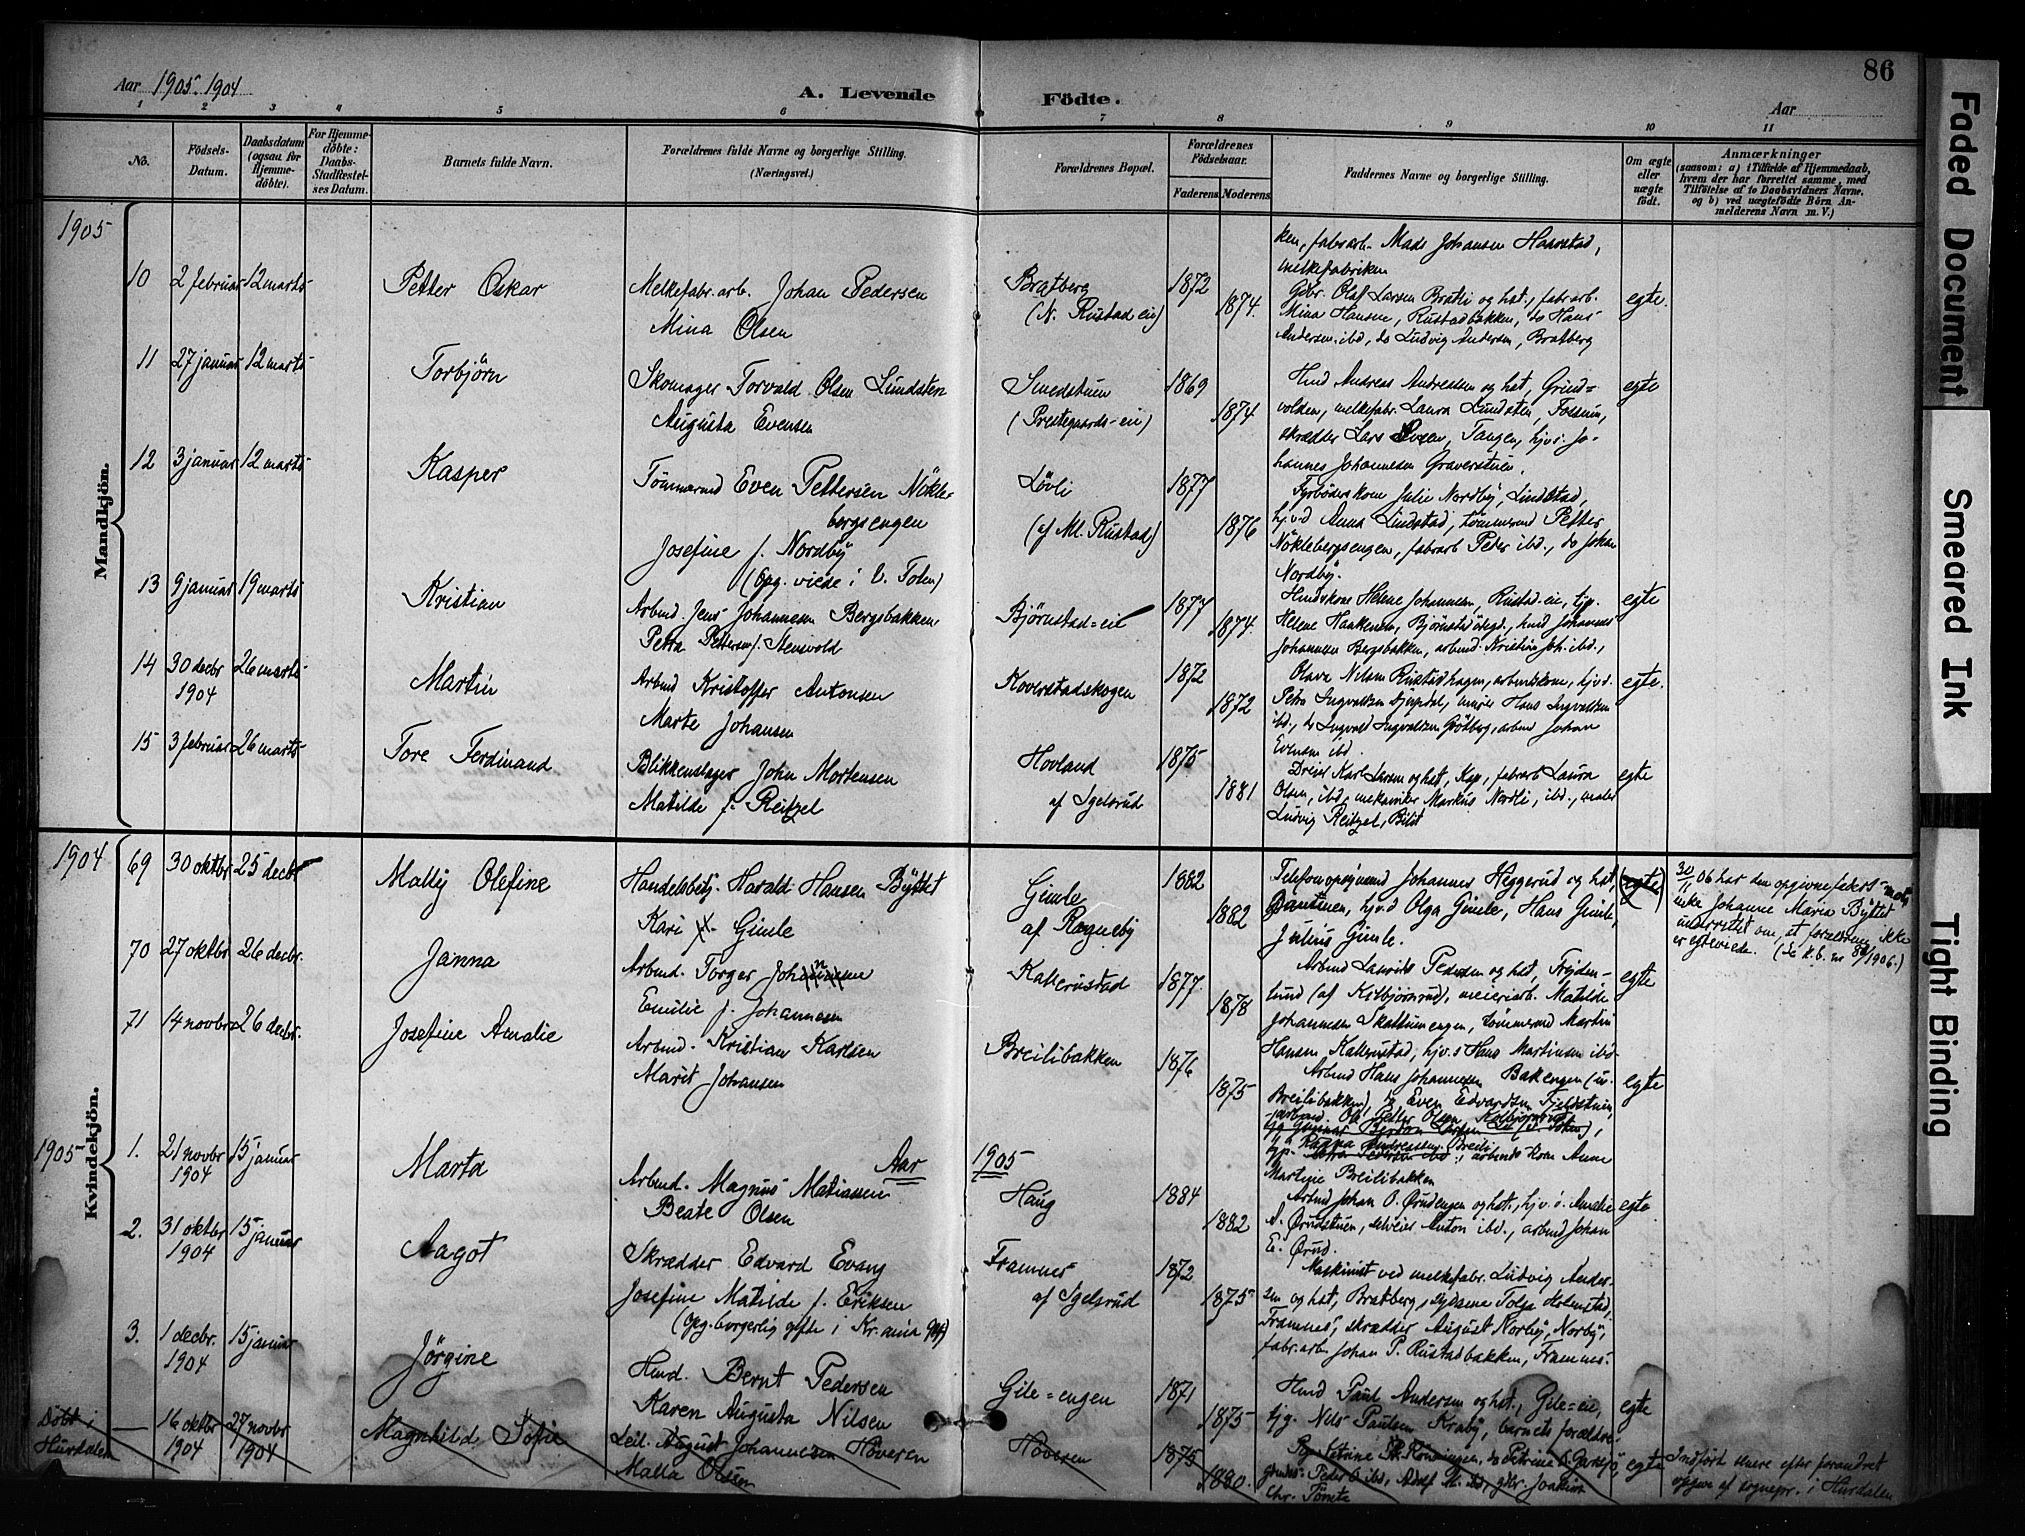 Aar 1905. 1904
A. Levende Födte.
Aar
86
1 2 3 4 5 6 7 8 9 10 11
No.
Födsels-Datum.
Daabsdatum (ogsaa for Hjemme-döbte).
For Hjemme-döbte: Daabs-Stadfæstel-ses Datum.
Barnets fulde Navn.
Forældrenes fulde Navne og borgerlige Stilling.
(Næringsvei.)
Forældrenes Bopæl.
Forældrenes Födselsaar.
Faderens Moderens
Faddernes Navne og borgerlige Stilling.
Om ægte eller uægte födt.
Anmærkninger
(saasom: a) i Tilfælde af Hjemmedaab, hvem der har forrettet samme, med Tilföielse af to Daabsvidners Navne, og b) ved uægtefödte Börn An-melderens Navn m. V.)
1905
Mandkjön.
ken, fabrarb. Mads Johansen Haarstad,
melkefabriken
10 2 februar 12 marts
Petter Oskar
Melkefabr.arb. Johan Pedersen
Mina Olsen
Bratberg
(N. Rustad eie)
1872
1874.
Gbr. Olaf Larsen Bratli og hst., fabr.arb.
Mina Hansen, Rustadbakken, do Hans
Andersen ibd, do Ludvig Andersen, Bratberg
egte.
11 27 januar 12 marts
Torbjörn
Skomager Torvald Olsen Lundsten
Augusta Evensen
Smedstuen
(Prestegaards-eie)
1869
1874
Hmd Andreas Andresen og hst, Grind=
volden, melkefabr. Laura Lundsten, Fossum,
skrædder Lars Olsen, Tangen, hjv.s. Jo-
hannes Johannesen Graverstuen.
egte
12 3 januar 12 marts
Kasper
Tömmermd Even Pettersen Nökle-
bergsengen
Josefine f. Nordby
(Opg. viede i V. Toten)
Lövli
(af Ml. Rustad)
1877
1876
Fyrböderskone Julie Nordby, Lindstad,
hjvd Anna Lindstad, tömmermd Petter
Nöklebergsengen, fabrarb Peder ibd., do Johan
Nordby.
13 9 januar 19 marts
Kristian
Arbmd. Jens Johannesen Bergsbakken
Petra Pettersen f. Stensvold
Björnstad=eie
1877
1874.
Hmdskone Helene Johannesen, Rustad-eie, tjp.
Helene Haakensen, Björnstadödegd., hmd Johannes
Johannesen Bergsbakken, arbmd. Kristian Joh. ibd.,
egte
14 30 decbr 1904 26 marts
Martin
Arbmd Kristoffer Antonsen
Marte Johansen
Koverstadskogen
1872
1872
Olava Nilsen Rustadhagen, arbmdskone, hjv.d.
Petra Ingvaldsen Djupdal, murer Hans Ingvaldsen
ibd., do Ingvald Ingvaldsen, arbmd Johan
Evensen ibd.
egte.
15 3 februar 26 marts
Tore Ferdinand
Blikkenslager John Mortensen
Matilde f. Reitzel
Hovland
af Igelsrud
1875
1881
Dreier Karl Larsen og hst, Kap, fabrarb Laura
Olsen, ibd, mekaniker Markus Nordli, ibd., maler
Ludvig Reitzel, Bilit
egte
1904
Kvindekjön.
69 30 oktbr 25 decbr
Mally Olefine
Handelsbetj. Harald Hansen Byttet
Kari Gimle
Gimle
af Rogneby
1882
1882
Telefonopsynmd Johannes Heggerud og hst,
hjv.d Olga Gimle, Hans Gimle,
Julius Gimle.
(egte)
30/11 06 har den opgivne faders mor
enke Johanne Marie Byttet
underrettet om, at forældrene ikke
er egteviede. (Se k.b. nr 86/1906.)
70 27 oktbr 26 decbr.
Janna
Arbmd. Torger Johansen
Emilie f. Johannesen
Kallerustad
1877
1878
Arbmd Laurits Pedersen og hst, Fryden-
lund (af Kilbjörnrud), meieriarb. Matilde
Johannesen Skattumengen, tömmermd Martin
Hansen Kallerustad, hjv.s Hans Martinsen ibd.
egte
71 14 novbr 26 decbr.
Josefine Amalie
Arbmd. Kristian Karlsen
Marit Johansen
Breilibakken
1876
1875
Arbmd Hans Johannesen Bakengen (u.
Breilibakken), Even Edvardsen Fjeldstuen
Ole Petter Olsen
Ragna Andreassen Breili, arbmds kone Anne
Martine Breilibakken
egte
Aar 1905
1905
1. 21 novbr 1904 15 januar
Marta
Arbmd. Magnus Matiassen
Beate Olsen
Haug
1884
1882
Arbmd Johan O. Örudengen og hst., hjv.d. Amalie
A. Örudstuen, Anton ibd., arbmd Johan
E. Örud.
egte
2. 31 oktbr 1904 15 januar
Aagot
Skrædder Edvard Evang
Josefine Matilde f. Eriksen
(Opg. borgerlig gifte i Kr.ania)
Framnes
af Igelsrud
1872
1875
Maskinist ved melkefabr. Ludvig Ander-
sen og hst, Bratberg, sydame Tolga Holmstad,
Framnes, skrædder August Norby, Norby,
fabr.arb. Johan P. Rustadbakken, Framnes.
3. 1 decbr. 1904 15 januar
Jörgine
Hmd. Bernt Pedersen
Karen Augusta Nilsen
Gile=engen
1871
1875
Hmd Paul Andersen og hst., Gile=eie,
tjg. Nils Paulsen Kraby, barnets forældre.
egte
Döbt i Hurdalen
— 16 oktbr 1904 27 novbr 1904
Magnhild Sofie
Leil. August Johannesen Höveren
Malla Olsen
Höveren
1875
1880
Röningen, do Petrine
Peder ibd, Adolf ibd, gbr. Joakim
Chr. Tömte
egte
Indfört senere efter forandret
opgave af sognepr. i Hurdalen
Faded Document
Smeared Ink
Tight Binding